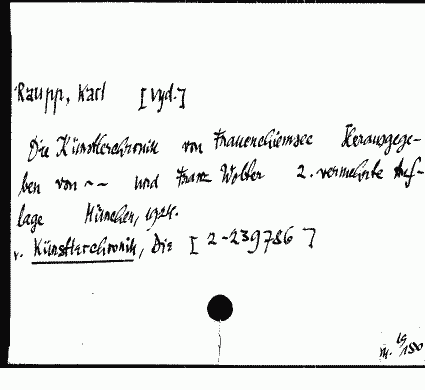 Raupp, Karl [Vyd.]
Die Künstlerchronik von Frauenchiemsee Herausgege-
ben von ~~ und Franz Wolter 2. vermehrte Auf-
lage München, 1924.
v. Künstlerchronik, Die [2-239786]
m. 19/180